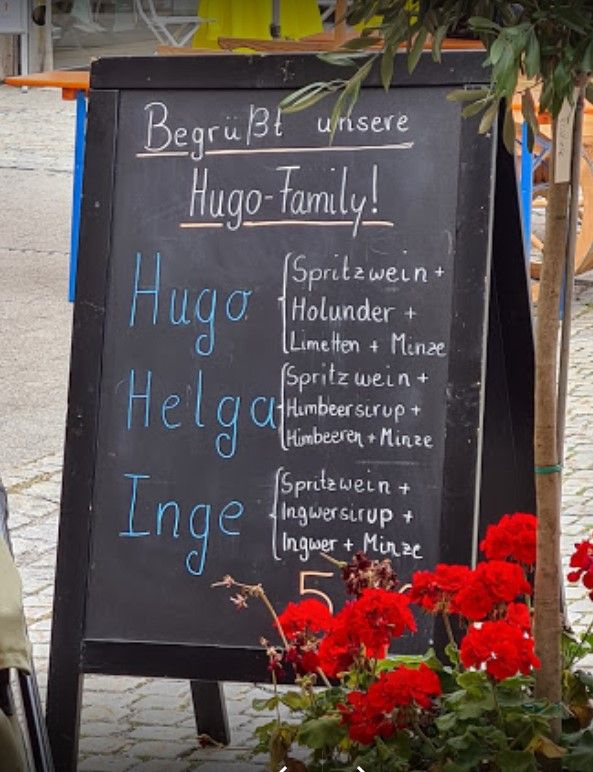 Begrüßt unsere
Hugo-Family!
Hugo
Spritzwein +
Holunder +
Limetten + Minze
Helga
Spritzwein +
Himbeersirup +
Himbeeren + Minze
Inge
Spritzwein +
Ingwersirup +
Ingwer + Minze
5